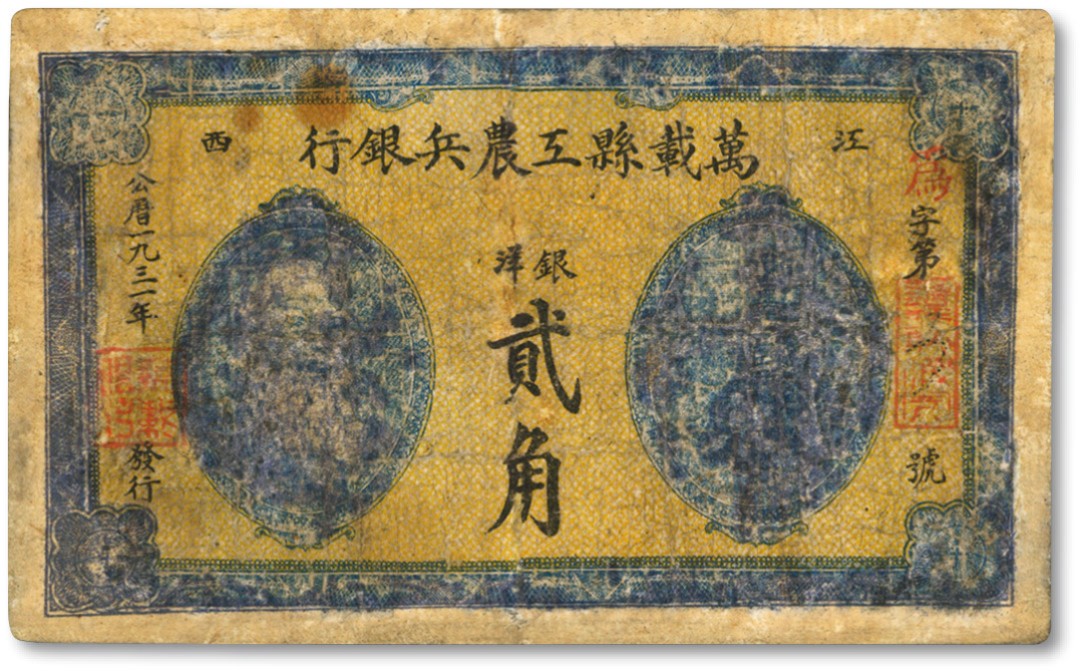 江西
萬載縣工農兵銀行
爲字第
號
銀洋
貳角
公曆一九三一年
發行